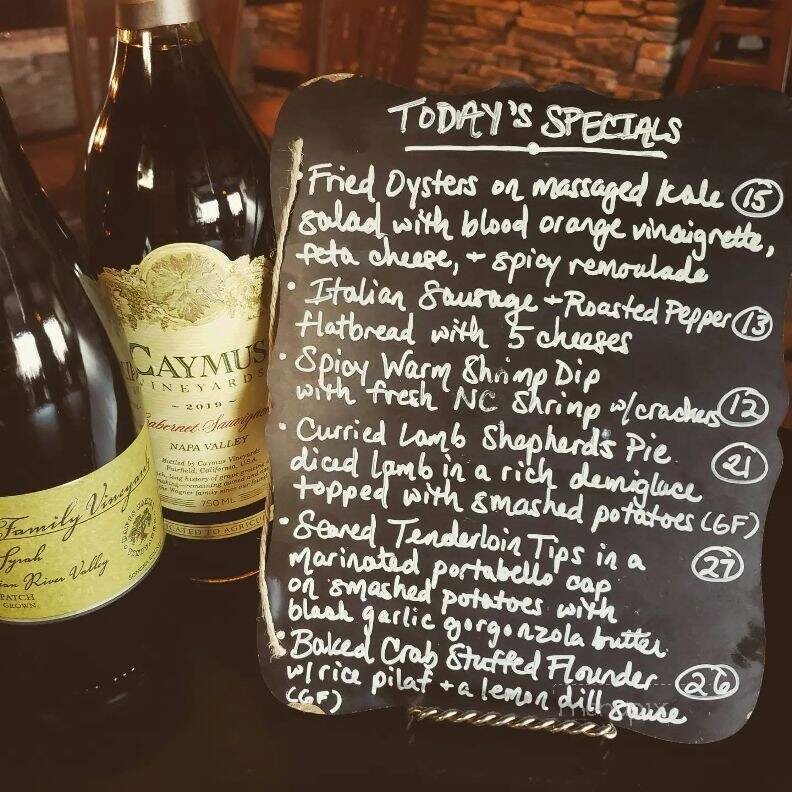 TODAY'S SPECIALS
• Fried Oysters on massaged Kale (15)
salad with blood orange vinaigrette,
feta cheese, + spicy remoulade
• Italian Sausage + Roasted Pepper (13)
flatbread with 5 cheeses
• Spicy Warm Shrimp Dip
with fresh NC Shrimp w/crackers (12)
• Curried Lamb Shepherd's Pie (21)
diced lamb in a rich demiglace
topped with smashed potatoes (GF)
• Seared Tenderloin Tips in a (27)
marinated portabello cap
on smashed potatoes with
black garlic gorgonzola butter
• Baked Crab Stuffed Flounder (26)
w/rice pilaf + a lemon dill sauce
(GF)
CAYMUS
VINEYARDS
~ 2019 ~
Cabernet Sauvignon
NAPA VALLEY
Bottled by Caymus Vineyards
Fairfield, California, U.S.A.
750ML
DICATED TO AGRICU
Family Vineyard
Syrah
ian River Valley
PATCH
GROWN